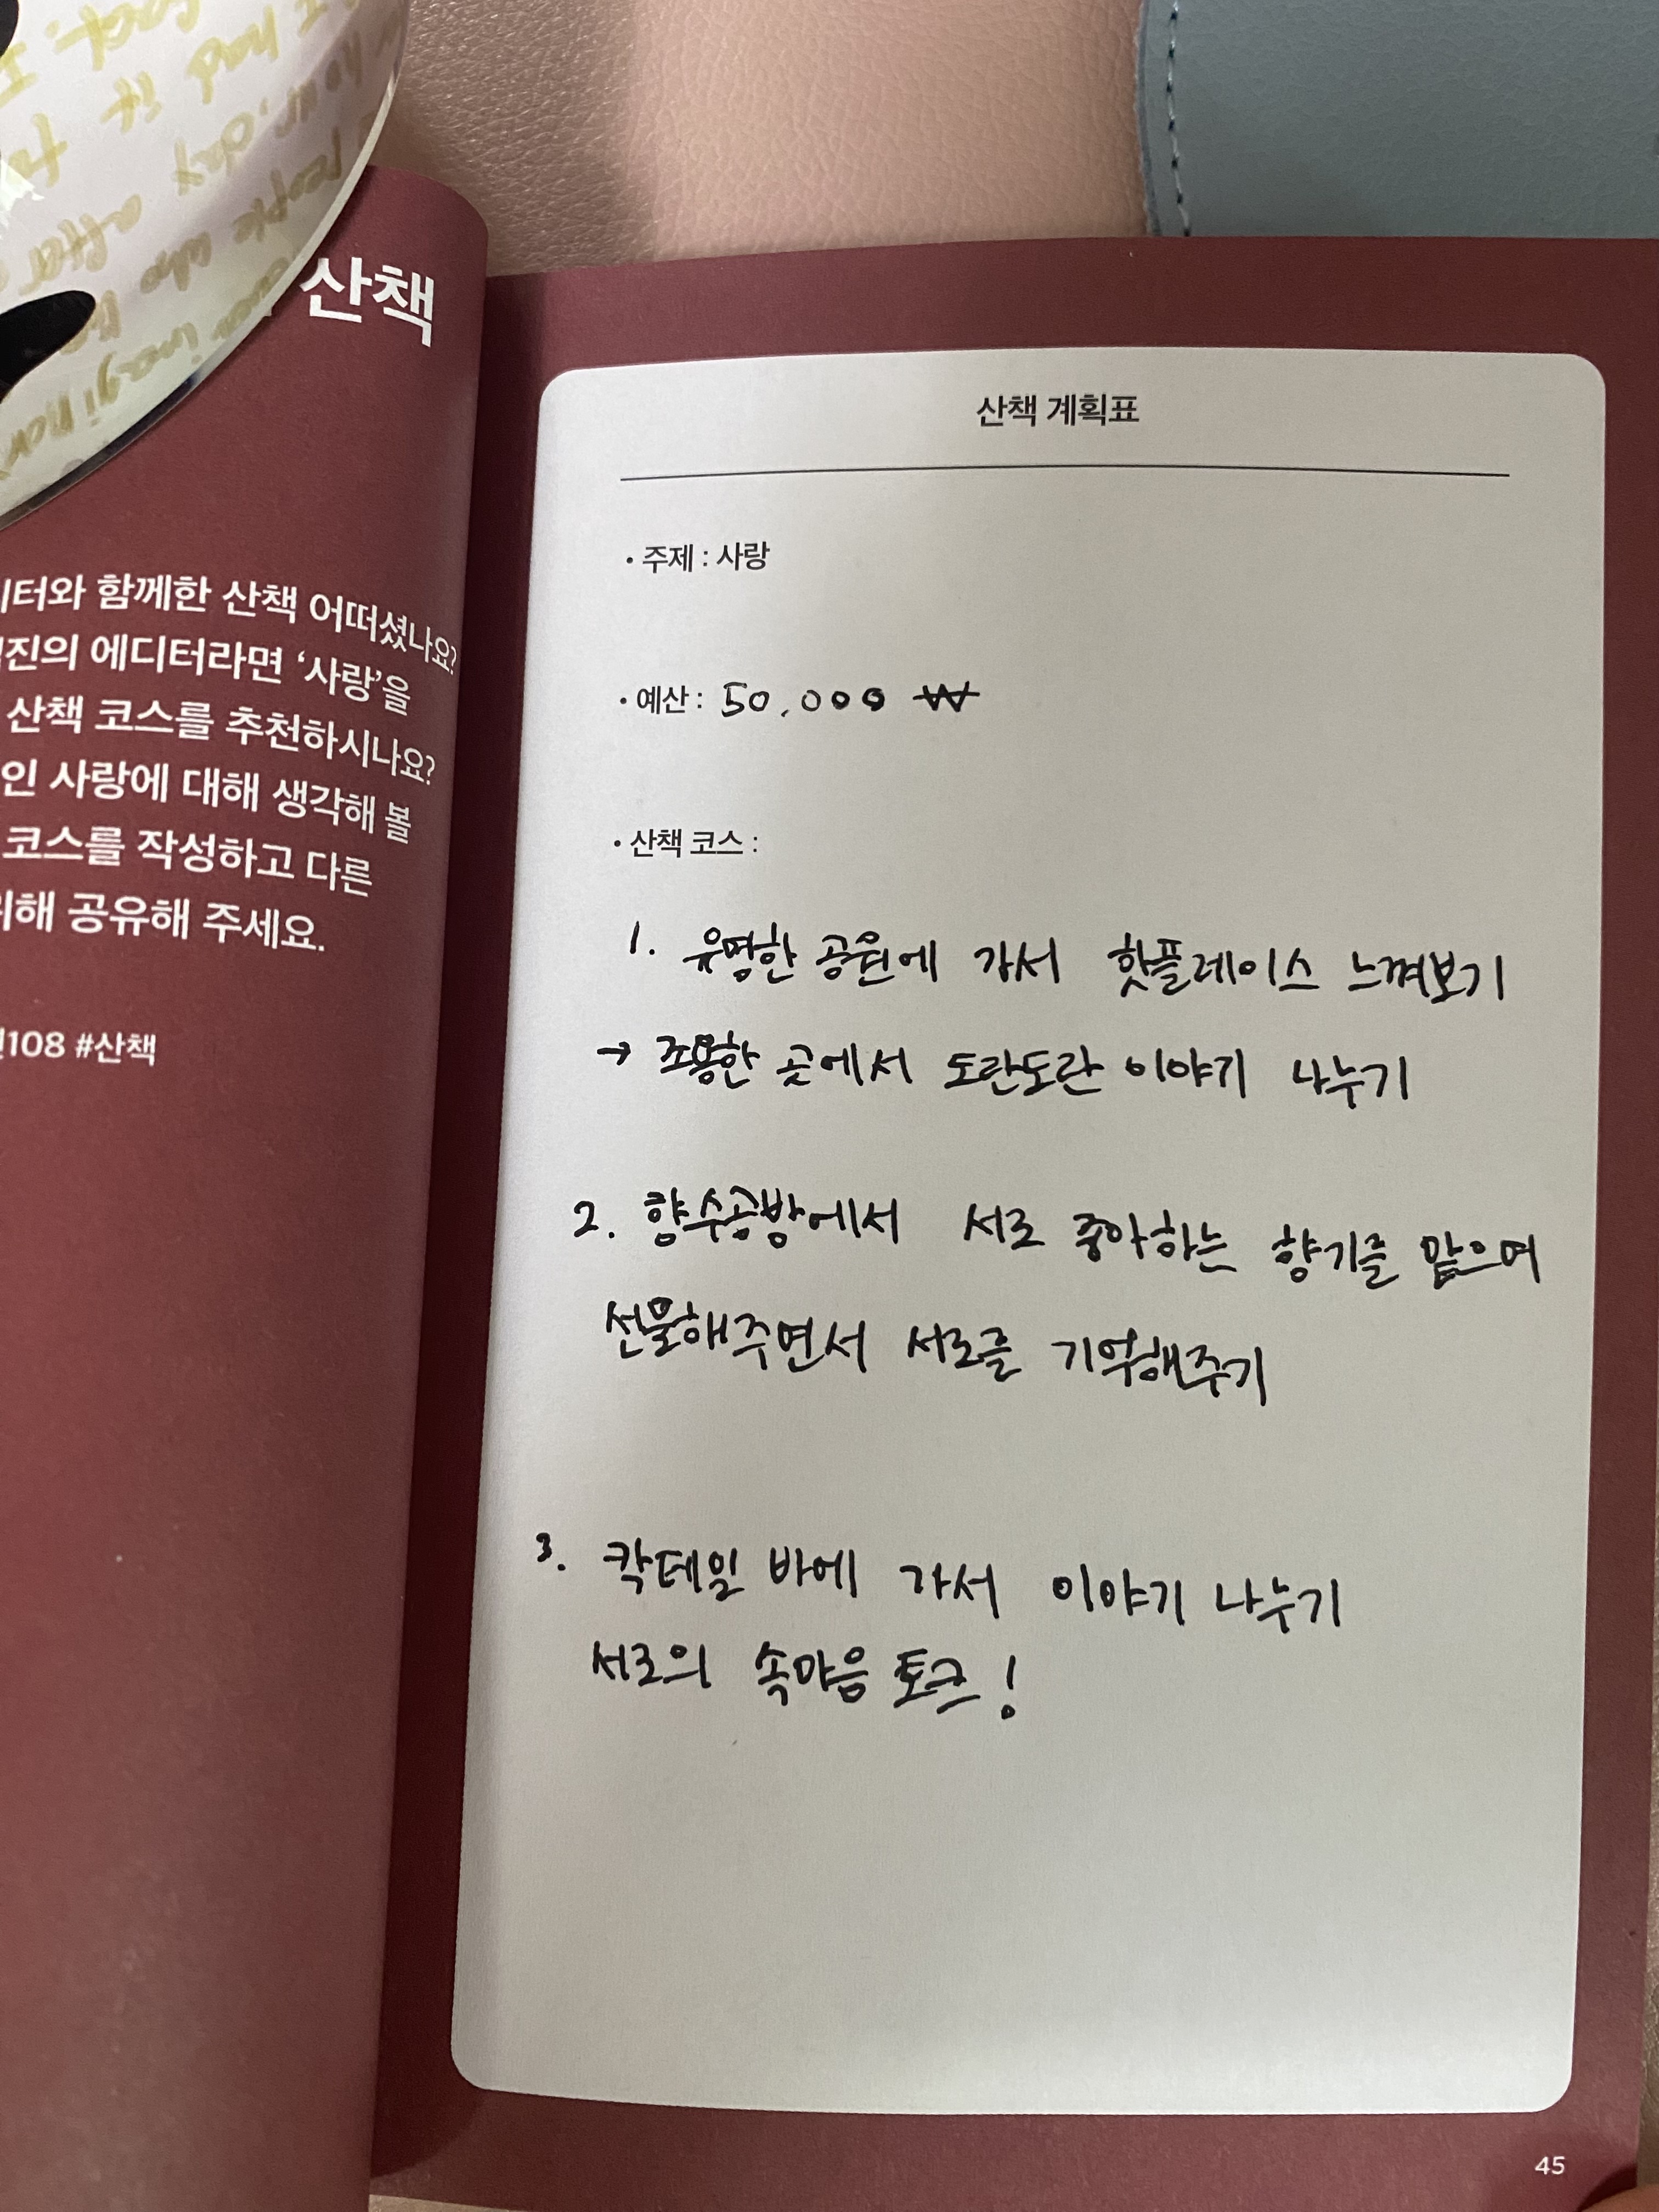 산책
이터와 함께한 산책 어떠셨나요?
진의 에디터라면 ‘사랑’을
산책 코스를 추천하시나요?
인 사랑에 대해 생각해 볼
코스를 작성하고 다른
위해 공유해 주세요.
108 #산책
산책 계획표
• 주제 : 사랑
• 예산 : 50,000 ₩
• 산책 코스 :
1. 유명한 공원에 가서 핫플레이스 느껴보기
→ 조용한 곳에서 도란도란 이야기 나누기
2. 향수공방에서 서로 좋아하는 향기를 맡으며
선물해주면서 서로를 기억해주기
3. 칵테일 바에 가서 이야기 나누기
서로의 속마음 토크!
45